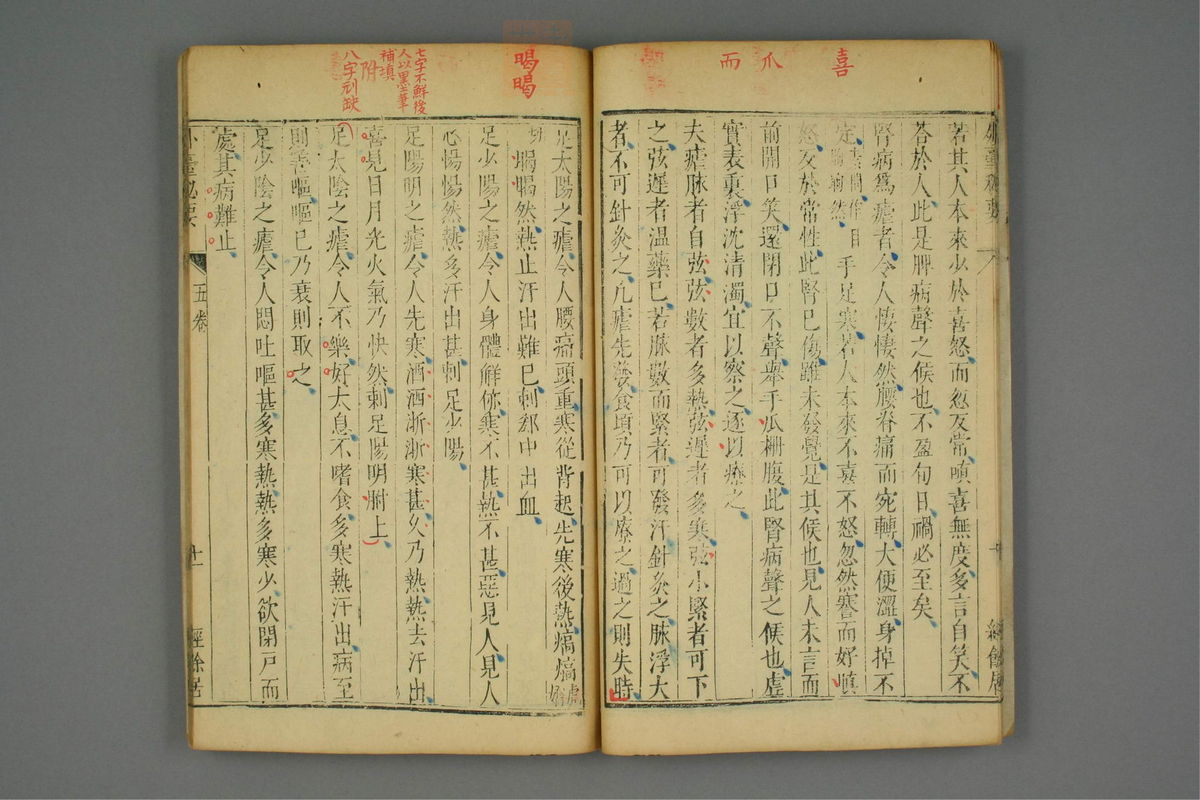 喜
爪
而
若其人本來少於喜怒而忽反常嗔喜無度多言自笑不
答於人此是脾病聲之候也不盈旬日禍必至矣
腎病為瘧者令人悽悽然腰脊痛而宛轉大便澀身掉不
定手足寒若人本來不喜不怒忽然蹇而好嗔
怒反於常性此腎已傷雖未發覺是其候也見人未言而
前開口笑還閉口不聲舉手瓜柵腹此腎病聲之候也虛
實表裏浮沈清濁宜以察之逐以療之
夫瘧脉者自弦弦數者多熱弦遲者多寒弦小緊者可下
之弦遲者温藥已若脉數而緊者可發汗針灸之脉浮大
者不可針灸之凡瘧先發食頃乃可以療之過之則失時
暍暍
七字不鮮後
人以墨筆
補填
附
八字刓缺
足太陽之瘧令人腰痛頭重寒從背起先寒後熱熇熇
暍暍然熱止汗出難已刺郄中出血
足少陽之瘧令人身體解㑊寒不甚熱不甚惡見人見人
心惕惕然熱多汗出甚刺足少陽
足陽明之瘧令人先寒洒洒淅淅寒甚久乃熱熱去汗出
喜見日月光火氣乃快然刺足陽明胕上
足太陰之瘧令人不樂好太息不嗜食多寒熱汗出病至
則善嘔嘔已乃衰則取之
足少陰之瘧令人悶吐嘔甚多寒熱熱多寒少欲閉戶而
處其病難止
外臺秘要 五卷 十一 經餘居